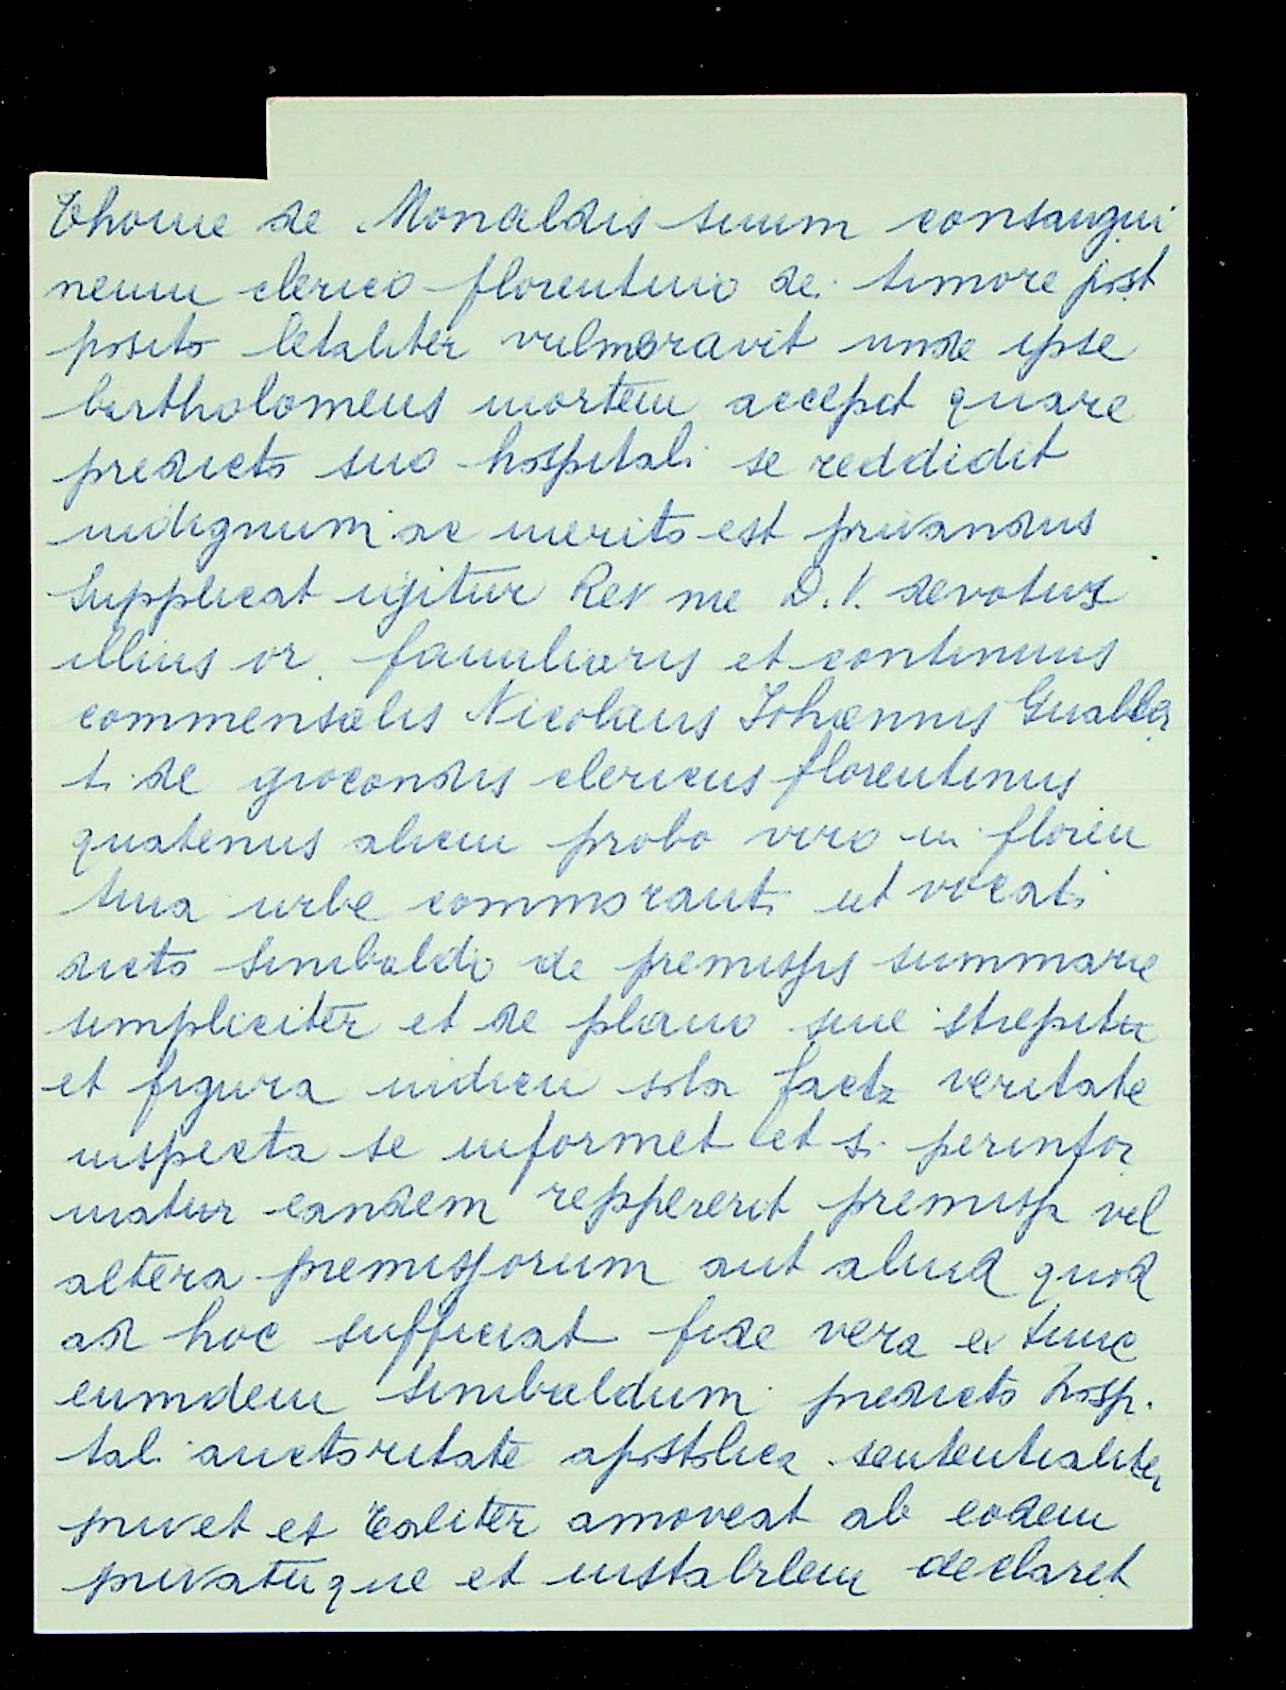 Thome de Monaldis suum consangui
neum clerico florentino dei timore post
posito letaliter vulneravit unde ipse
bartholomeus mortem accepit quare
predicto suo hospitali se reddidit
indignum ac merito est privandus
Supplicat igitur Rev me D.V. devotus
illius or. familiaris et continuus
commensalis Nicolaus Johannis Gualter
ti de giocondis clericus florentinus
quatenus alicui probo viro in floren
tina urbe commoranti ut vocati
dicto Sinibaldo de premissis summarie
simpliciter et de plano sine strepitu
et figura iudicii sola facti veritate
inspecta se informet et si perinfor
matur eandem reppererit premissa vel
altera premissorum aut aliud quod
ad hoc sufficiat fide vera ex tunc
eumdem Sinibaldum predicto hospi
tali auctoritate apostolica sententialiter
privet et realiter amoveat ab eodem
privatuque et instabilem declaret